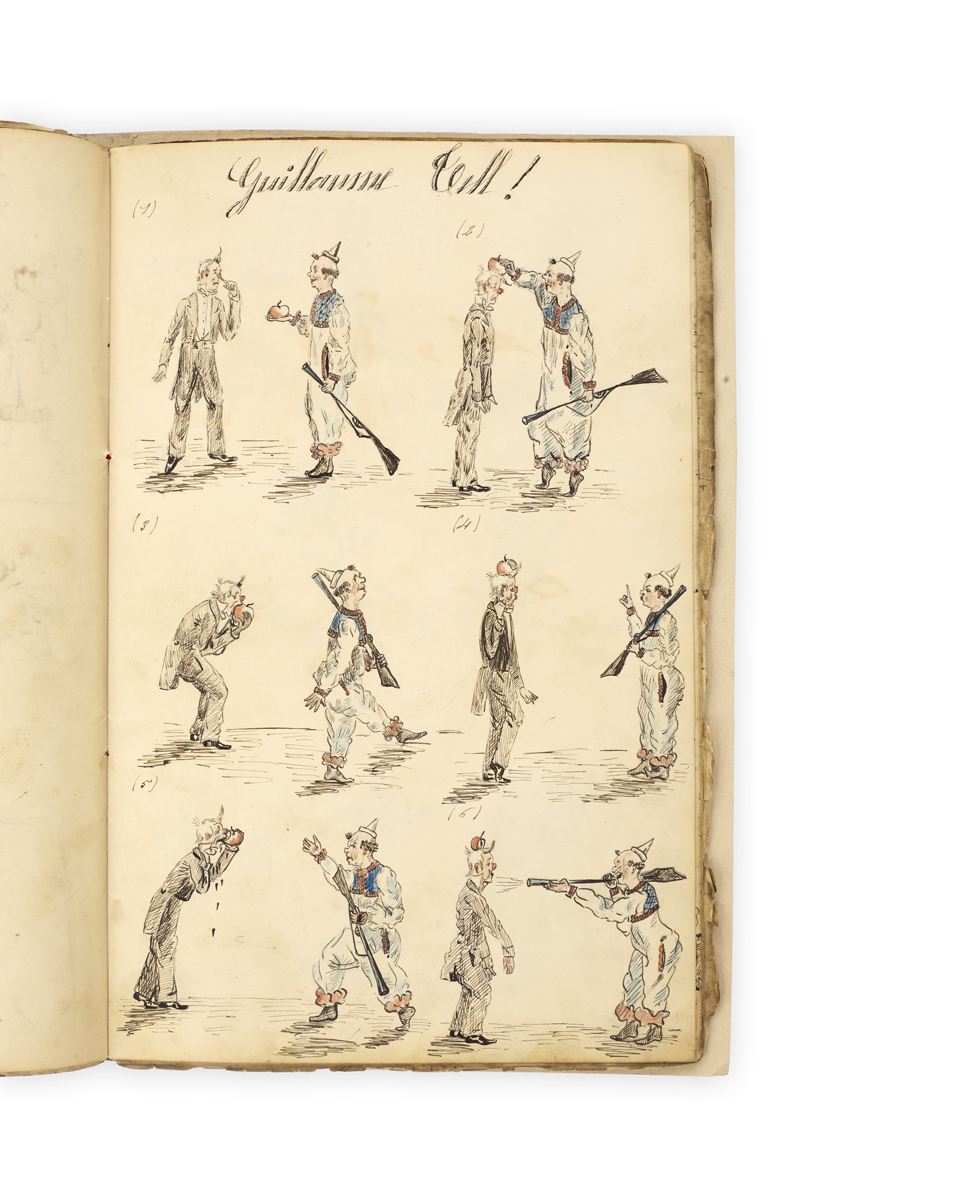 Guillaume Tell!
(1)
(2)
(3)
(4)
(5)
(6)